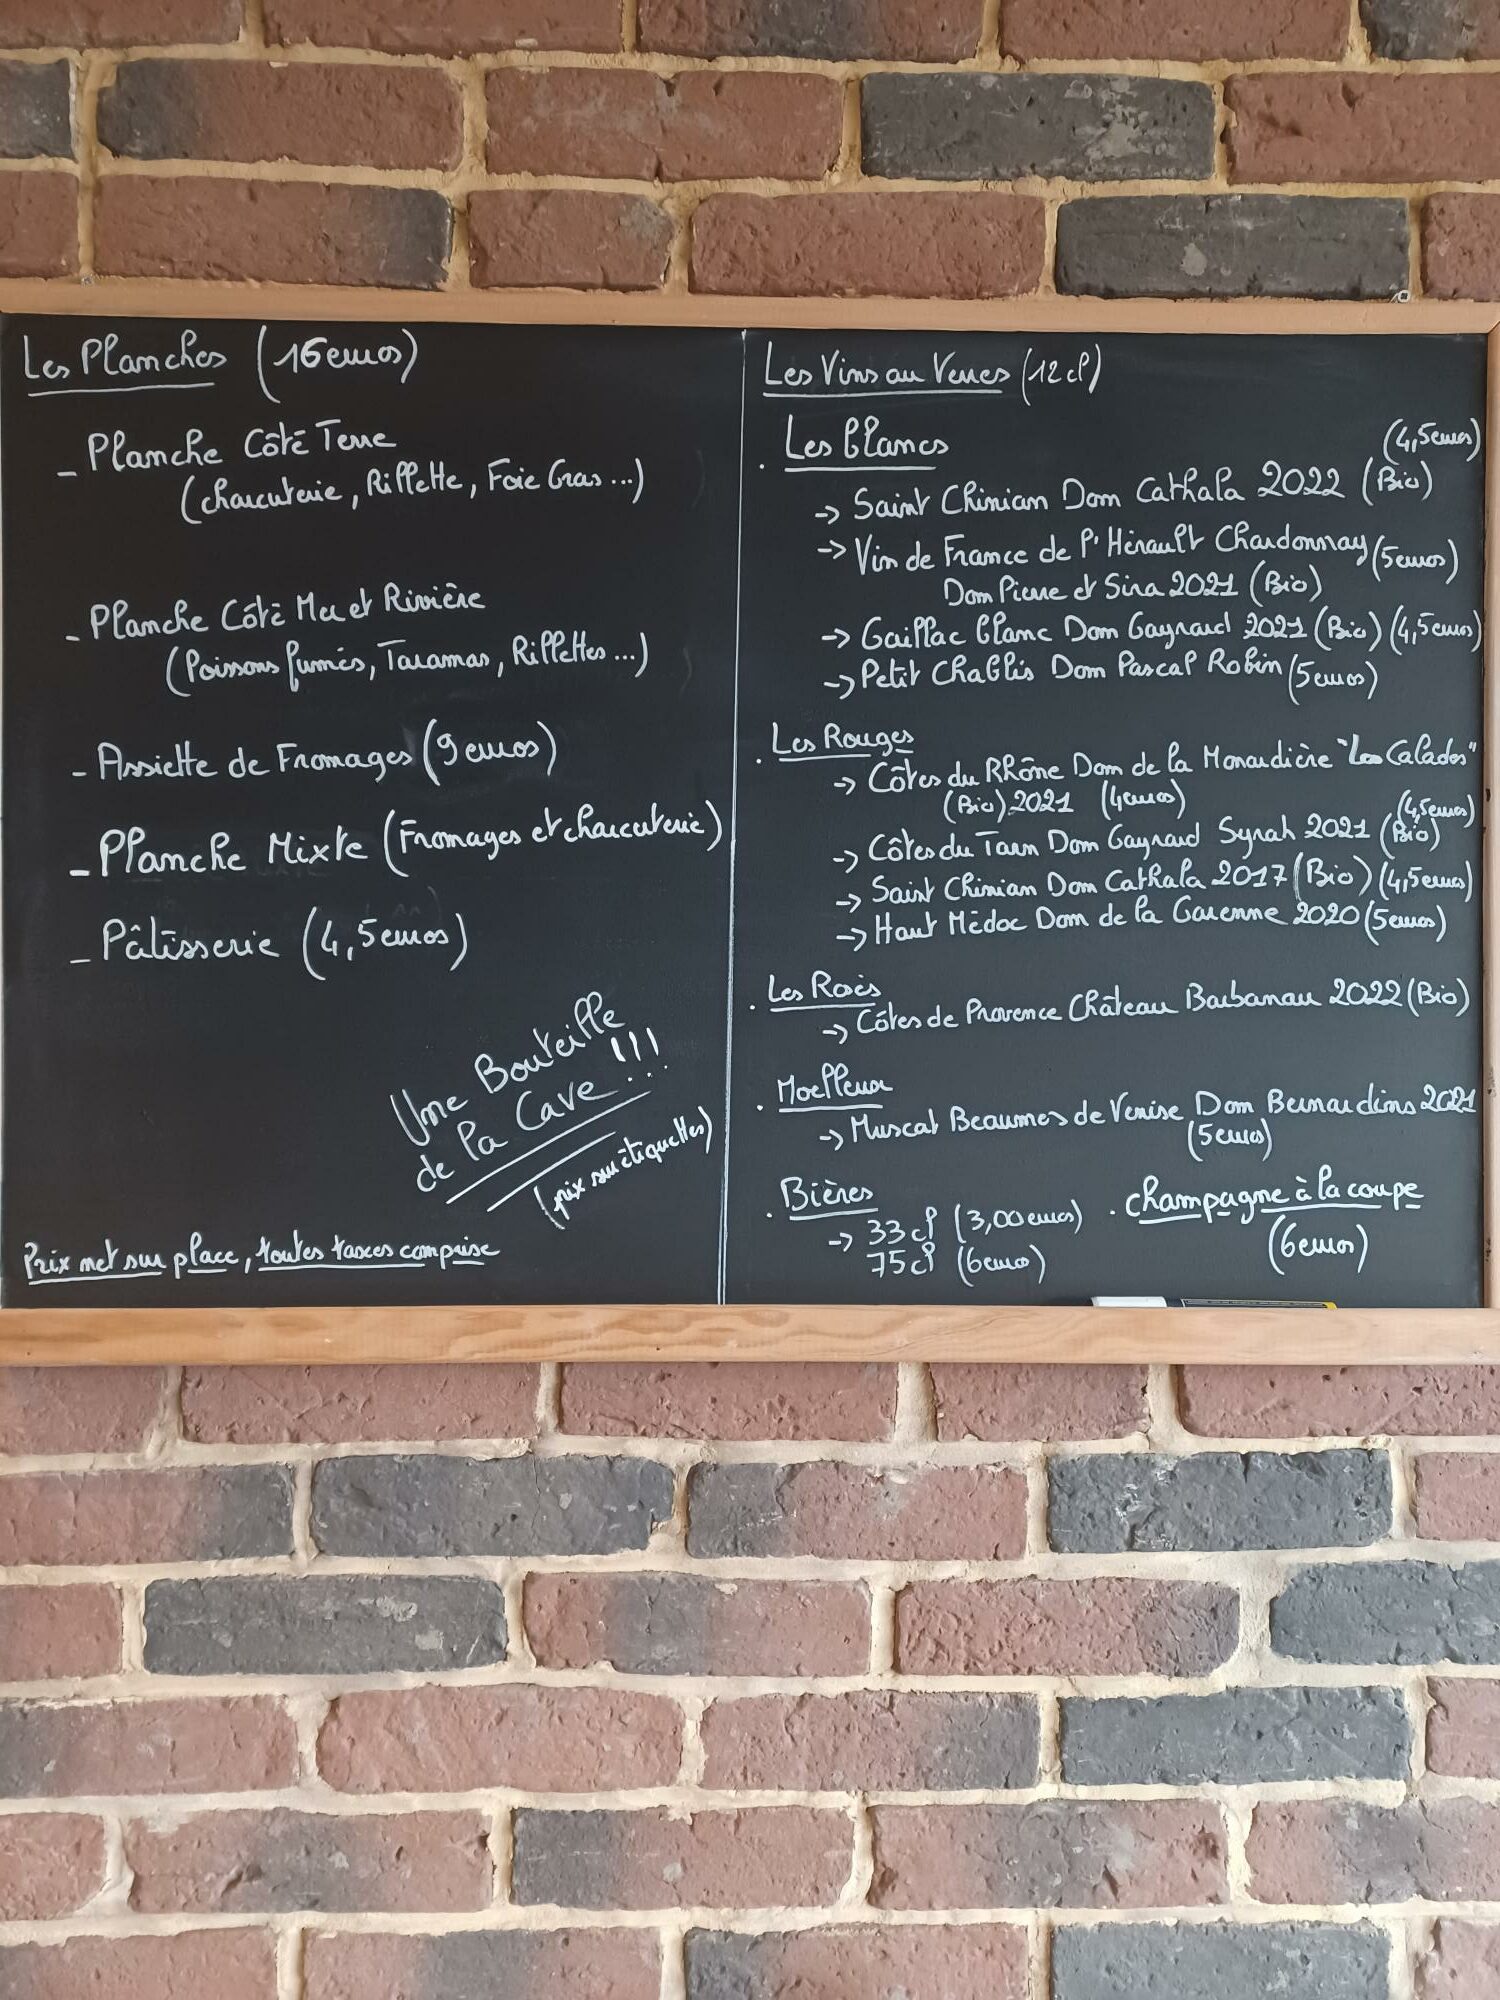 Les Planches (16 euros)
- Planche Côté Terre
(charcuterie, Rillette, Foie Gras ...)
- Planche Côté Mer et Rivière
(Poissons fumés, Taramas, Rillettes ...)
- Assiette de Fromages (9 euros)
- Planche Mixte (Fromages et charcuterie)
- Pâtisserie (4,5 euros)
Une Bouteille
de la Cave !!!
(prix sur étiquettes)
Prix net sur place, toutes taxes comprise
Les Vins au Verres (12 cl)
. Les blancs
(4,5 euros)
-> Saint Chinian Dom Cathala 2022 (Bio)
-> Vin de France de l'Hérault Chardonnay (5 euros)
Dom Pierre et Sira 2021 (Bio)
-> Gaillac blanc Dom Gayrard 2021 (Bio) (4,5 euros)
-> Petit Chablis Dom Pascal Robin (5 euros)
. Les Rouges
-> Côtes du Rhône Dom de la Monardière "Les Calades"
(Bio) 2021 (4 euros)
(4,5 euros)
-> Côtes du Tarn Dom Gayrard Syrah 2021 (Bio)
-> Saint Chinian Dom Cathala 2017 (Bio) (4,5 euros)
-> Haut Médoc Dom de la Garenne 2020 (5 euros)
. Les Rosés
-> Côtes de Provence Château Barbanau 2022 (Bio)
. Moelleux
-> Muscat Beaumes de Venise Dom Bernardins 2021
(5 euros)
. Bières
-> 33 cl (3,00 euros)
75 cl (6 euros)
. champagne à la coupe
(6 euros)